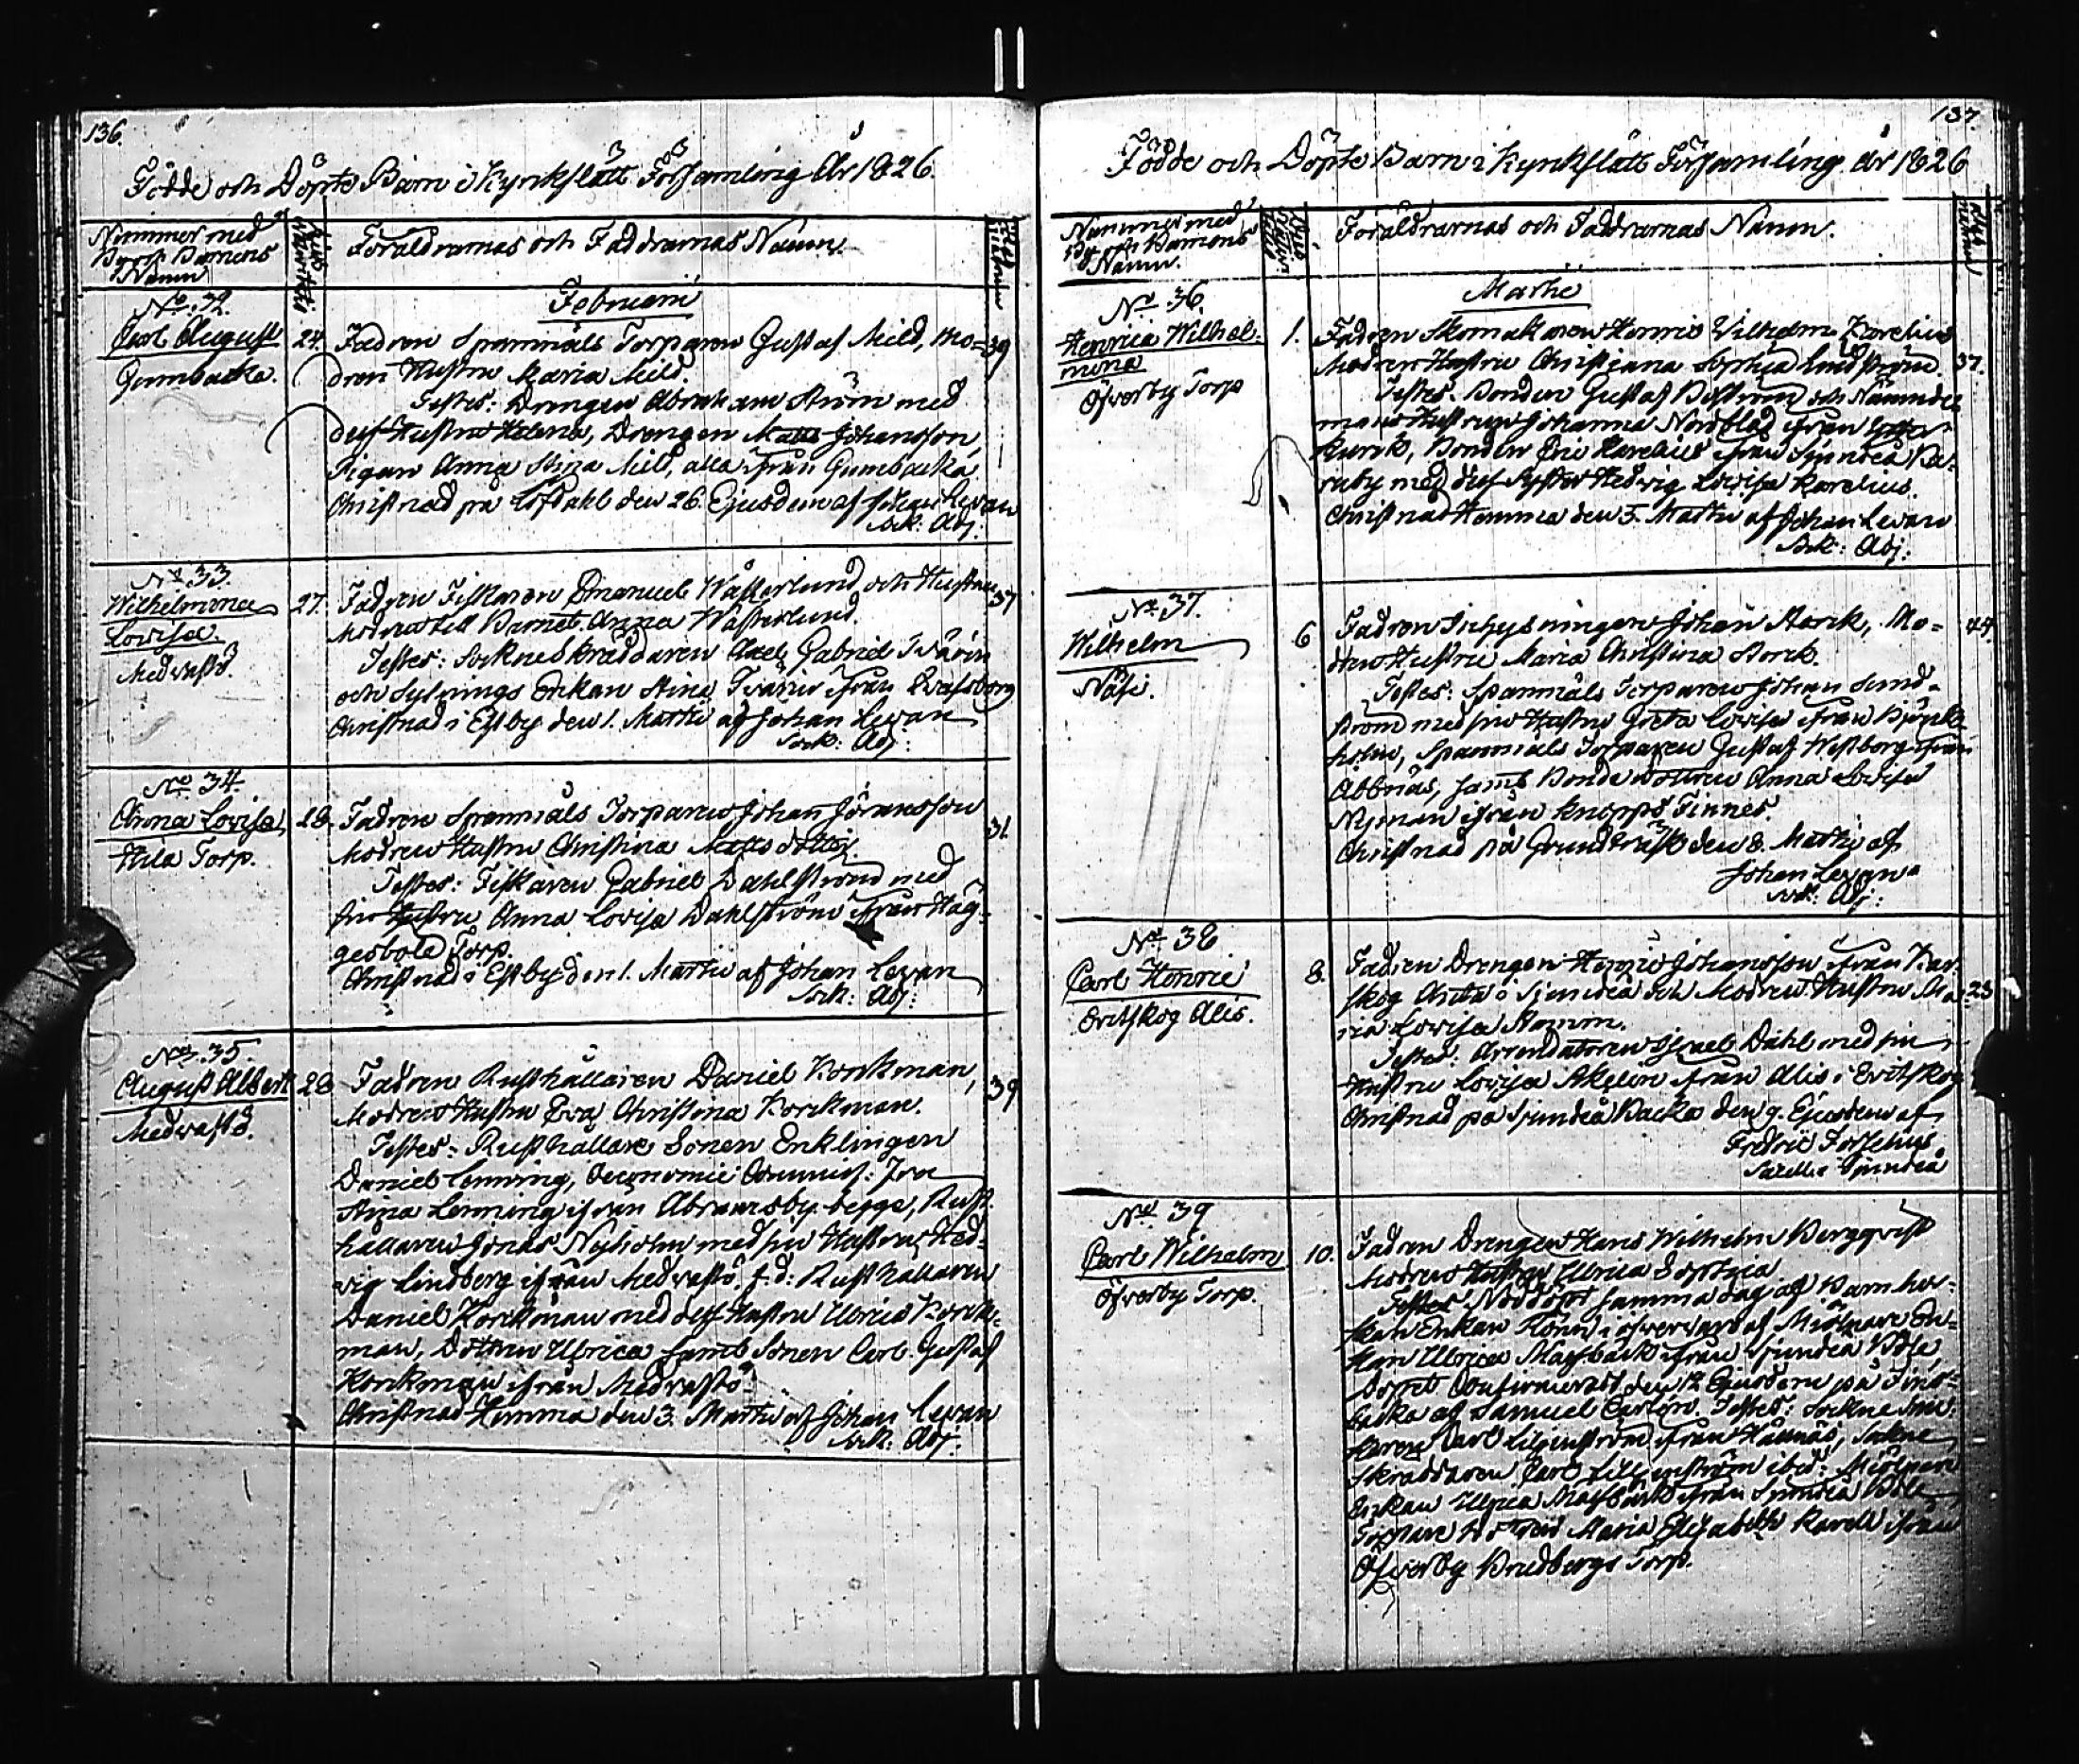 136.
Födde och Döpte Barn i Kyrkslätt Församling År 1826.
Nummer med
By och Barnens
Namn
Föräldrarnas och Faddrarnas Namn.
Februarii
No. 32.
Carl August
Gumbacka.
24.
Fadren Spanmåls Torparen Gustaf Mild, Mo=
39
dren Hustru Maria Mild.
Testes: Drengen Abraham Ström med
dess Hustru Helena, Drengen Matts Johansson,
Pigan Anna Stina Mild, alla ifrån Gumbacka
Christnad på Löfdahl den 26. Ejusdem af Johan Levan
Sock: Adj:
No. 33.
Wilhelmina
Lovisa.
Medvastö.
27.
Fadren Fiskaren Emanuel Wästerlund och Hustru
37
Modren till Barnet Anna Wästerlund.
Testes: Sockneskräddaren Axel Gabriel
och Enkan Stina ifrån
Christnad i Estby den 1. Martii af Johan Levan
Sock: Adj:
No. 34.
Anna Lovisa
Hila Torp.
28.
Fadren Spanmåls Torparen Johan Göransson
31.
Modren Hustru Christina Mattsdotter.
Testes: Fiskaren Gabriel Dahlström med
sin Hustru Anna Lovisa Dahlström ifrån Häg=
gesböle Torp.
Christnad i Estby den 1. Martii af Johan Levan
Sock: Adj:
No. 35.
August Albert
Medvastö.
28
Fadren Rusthållaren Daniel Korckman,
39
Modren Hustru Eva Christina Korckman.
Testes: Rusthållare Sonen Enklingen
Daniel Lenning, Oeconomie Commiss: Fru
Stina Lenning ifrån Abramsby begge, Rust=
hållaren Jonas Nyholm med sin Hustru Hed=
vig Lindberg ifrån Medvastö, f.d: Rusthållaren
Daniel Korckman med dess Hustru Ulrica Korck=
man, Dottren Ulrica samt Sonen Carl Gustaf
Korckman ifrån Medvastö.
Christnad Hemma den 3. Martii af Johan Levan
Sock: Adj:
137.
Födde och Döpte Barn i Kyrkslätt Församling År 1826
Nummer med
By och Barnens
Namn.
Föräldrarnas och Faddrarnas Namn.
Martii
No. 36
Henrica Wilhel=
mina
Öfverby Torp
1.
Fadren Skomakaren Henric Vilhelm Karelius
Modren Hustru Christjana Sophia Lindström.
37.
Testes. Bonden Gustaf Boström och Nämnde=
mans Hustrun Johanna Nordblad ifrån
kurck, Bonden Eric Karelius ifrån Sjundeå
med dess Syster Hedvig Lovisa Karelius.
Christnad Hemma den 5. Martii af Johan Levan
Sock: Adj:
No. 37.
Wilhelm
Näse.
6
Fadren Johan Storck, Mo=
44.
dren Hustru Maria Christina Storck.
Testes: Spanmåls Torparen Johan Lind=
ström med sin Hustru Greta Lovisa ifrån Björck
holm, Spanmåls Torparen Gustaf Westberg ifrån
Abbnäs, samt Bonde dottren Anna Lovisa
Nyman ifrån Knopps Finnes.
Christnad på Grundträsk den 8. Martii af
Johan Levan
Sock: Adj:
No. 38
Carl Henric
Evitskog Alis.
8.
Fadren Drengen Henric Johansson ifrån Kar=
skog Anita i Sjundeå och Modren Hustru Ma=
23
ria Lovisa Stamm.
Testes: Arrendatoren Israel Dahl med sin
Hustru Lovisa Akelin ifrån Alis i Evitskog
Christnad på Sjundeå Backa den 9. Ejusdem af
Fredric Forselius
Sacell. i Sjundeå
No. 39
Carl Wilhelm
Öfverby Torp.
10.
Fadren Drengen Hans Wilhelm Bergqvist
Modren Hustru Ulrica Sophia
Testes Nöddöpt samma dag af Barnmor=
skan Enkan Rönn i öfvervaro af Mjölnare En=
kan Ulrica Massbäck ifrån Sjundeå Böle,
Dopet Confirmeradt den 12 Ejusdem på
backa af Samuel Carlsson. Testes: Sockne
Carl Liljenström ifrån Håinäs, Sockne
Skräddaren Carl Liljenström ibid: Mjölnare
Enkan Ulrica Massbäck ifrån Sjundeå Böle
Torpare Maria Elisabeth Karell ifrån
Öfverby Bredbergs Torp.